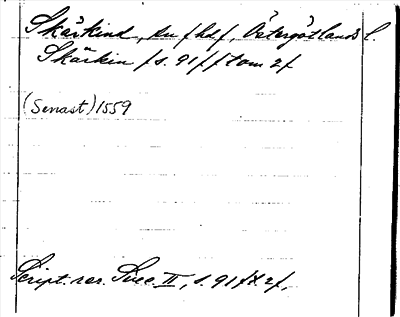 Skärkind, sn /hd/, Östergötlands l.
Skärkin /s. 91/ f t om 2/
(Senast) 1559
Script. rer. Suec. II, s. 91 /t. 2/.